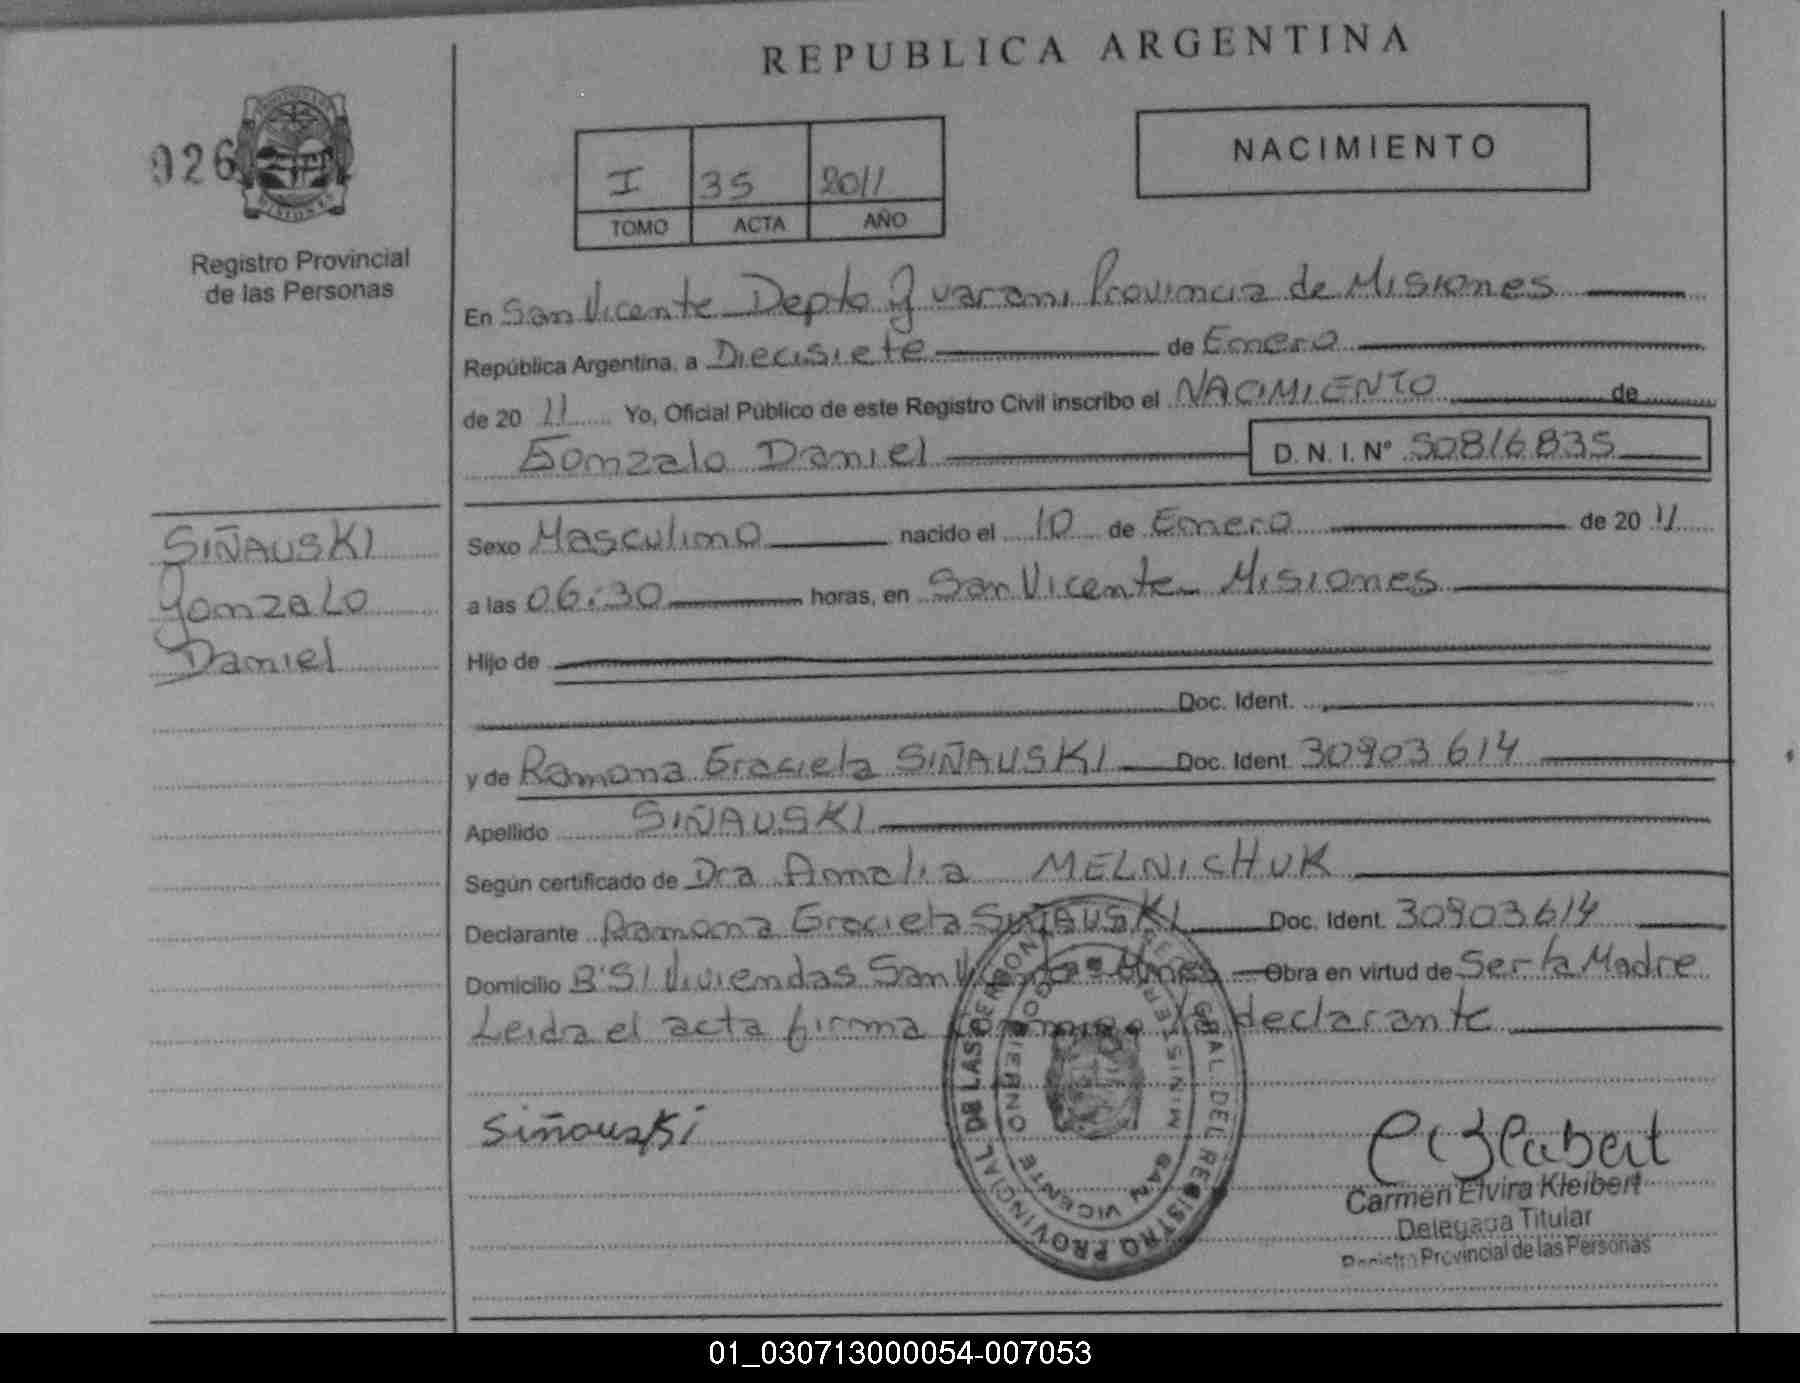 REPUBLICA ARGENTINA
026
I 35 2011
TOMO ACTA AÑO
NACIMIENTO
Registro Provincial
de las Personas
En San Vicente Depto Guarani Provincia de Misiones
República Argentina, a Diecisiete de Enero
de 20 11 Yo, Oficial Público de este Registro Civil inscribo el NACIMIENTO de
Gonzalo Daniel D. N. I. Nº 50816835
SIÑAUSKI
Gonzalo
Daniel
Sexo Masculino nacido el 10 de Enero de 20 11
a las 06:30 horas, en San Vicente Misiones
Hijo de
Doc. Ident.
y de Ramona Graciela SIÑAUSKI Doc. Ident. 30903614
Apellido SIÑAUSKI
Según certificado de Dra Analia MELNICHUK
Declarante Ramona Graciela SIÑAUSKI Doc. Ident. 30903614
Domicilio Bº 51 Viviendas San Vicente Mnes Obra en virtud de Ser la Madre
Leida el acta firma conmigo la declarante
Siñauski
DIRECCION GRAL. DEL REGISTRO PROVINCIAL DE LAS PERSONAS
MINISTERIO DE GOBIERNO
SAN VICENTE
Carmen Elvira Kleibert
Delegada Titular
Registro Provincial de las Personas
01_030713000054-007053